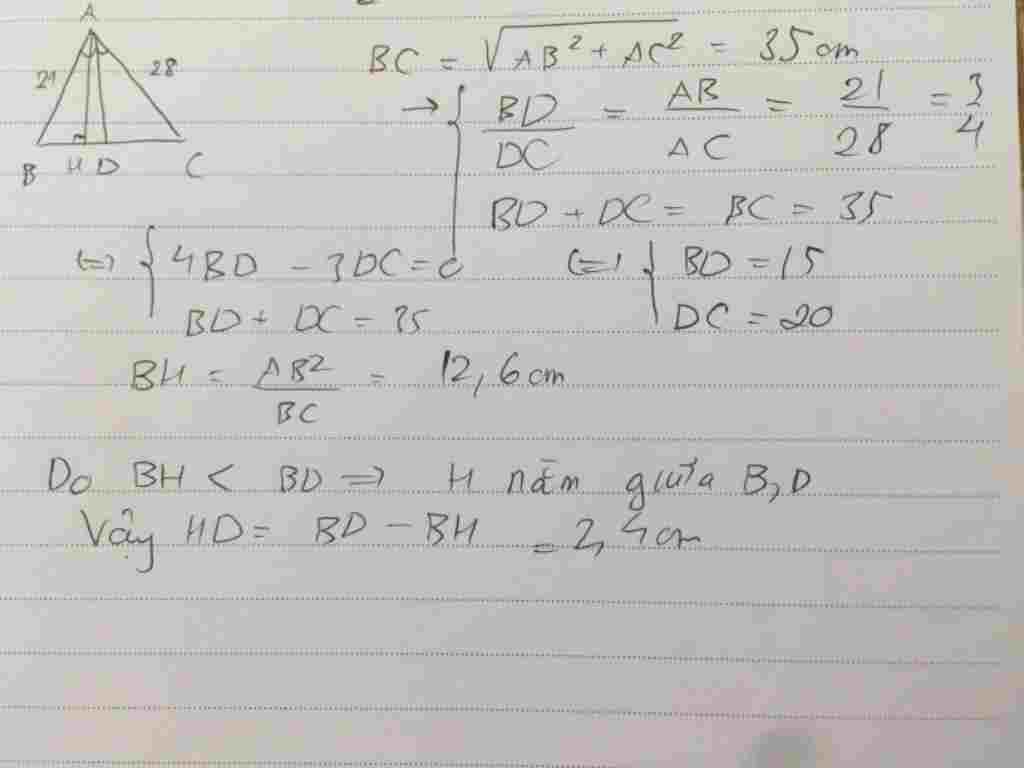 A
21
28
B H D C
BC = √(AB² + AC²) = 35 cm
→ { BD/DC = AB/AC = 21/28 = 3/4
BD + DC = BC = 35
(=) { 4BD - 3DC = 0 (=) { BD = 15
BD + DC = 35 DC = 20
BH = AB²/BC = 12,6 cm
Do BH < BD => H nằm giữa B, D
Vậy HD = BD - BH = 2,4 cm